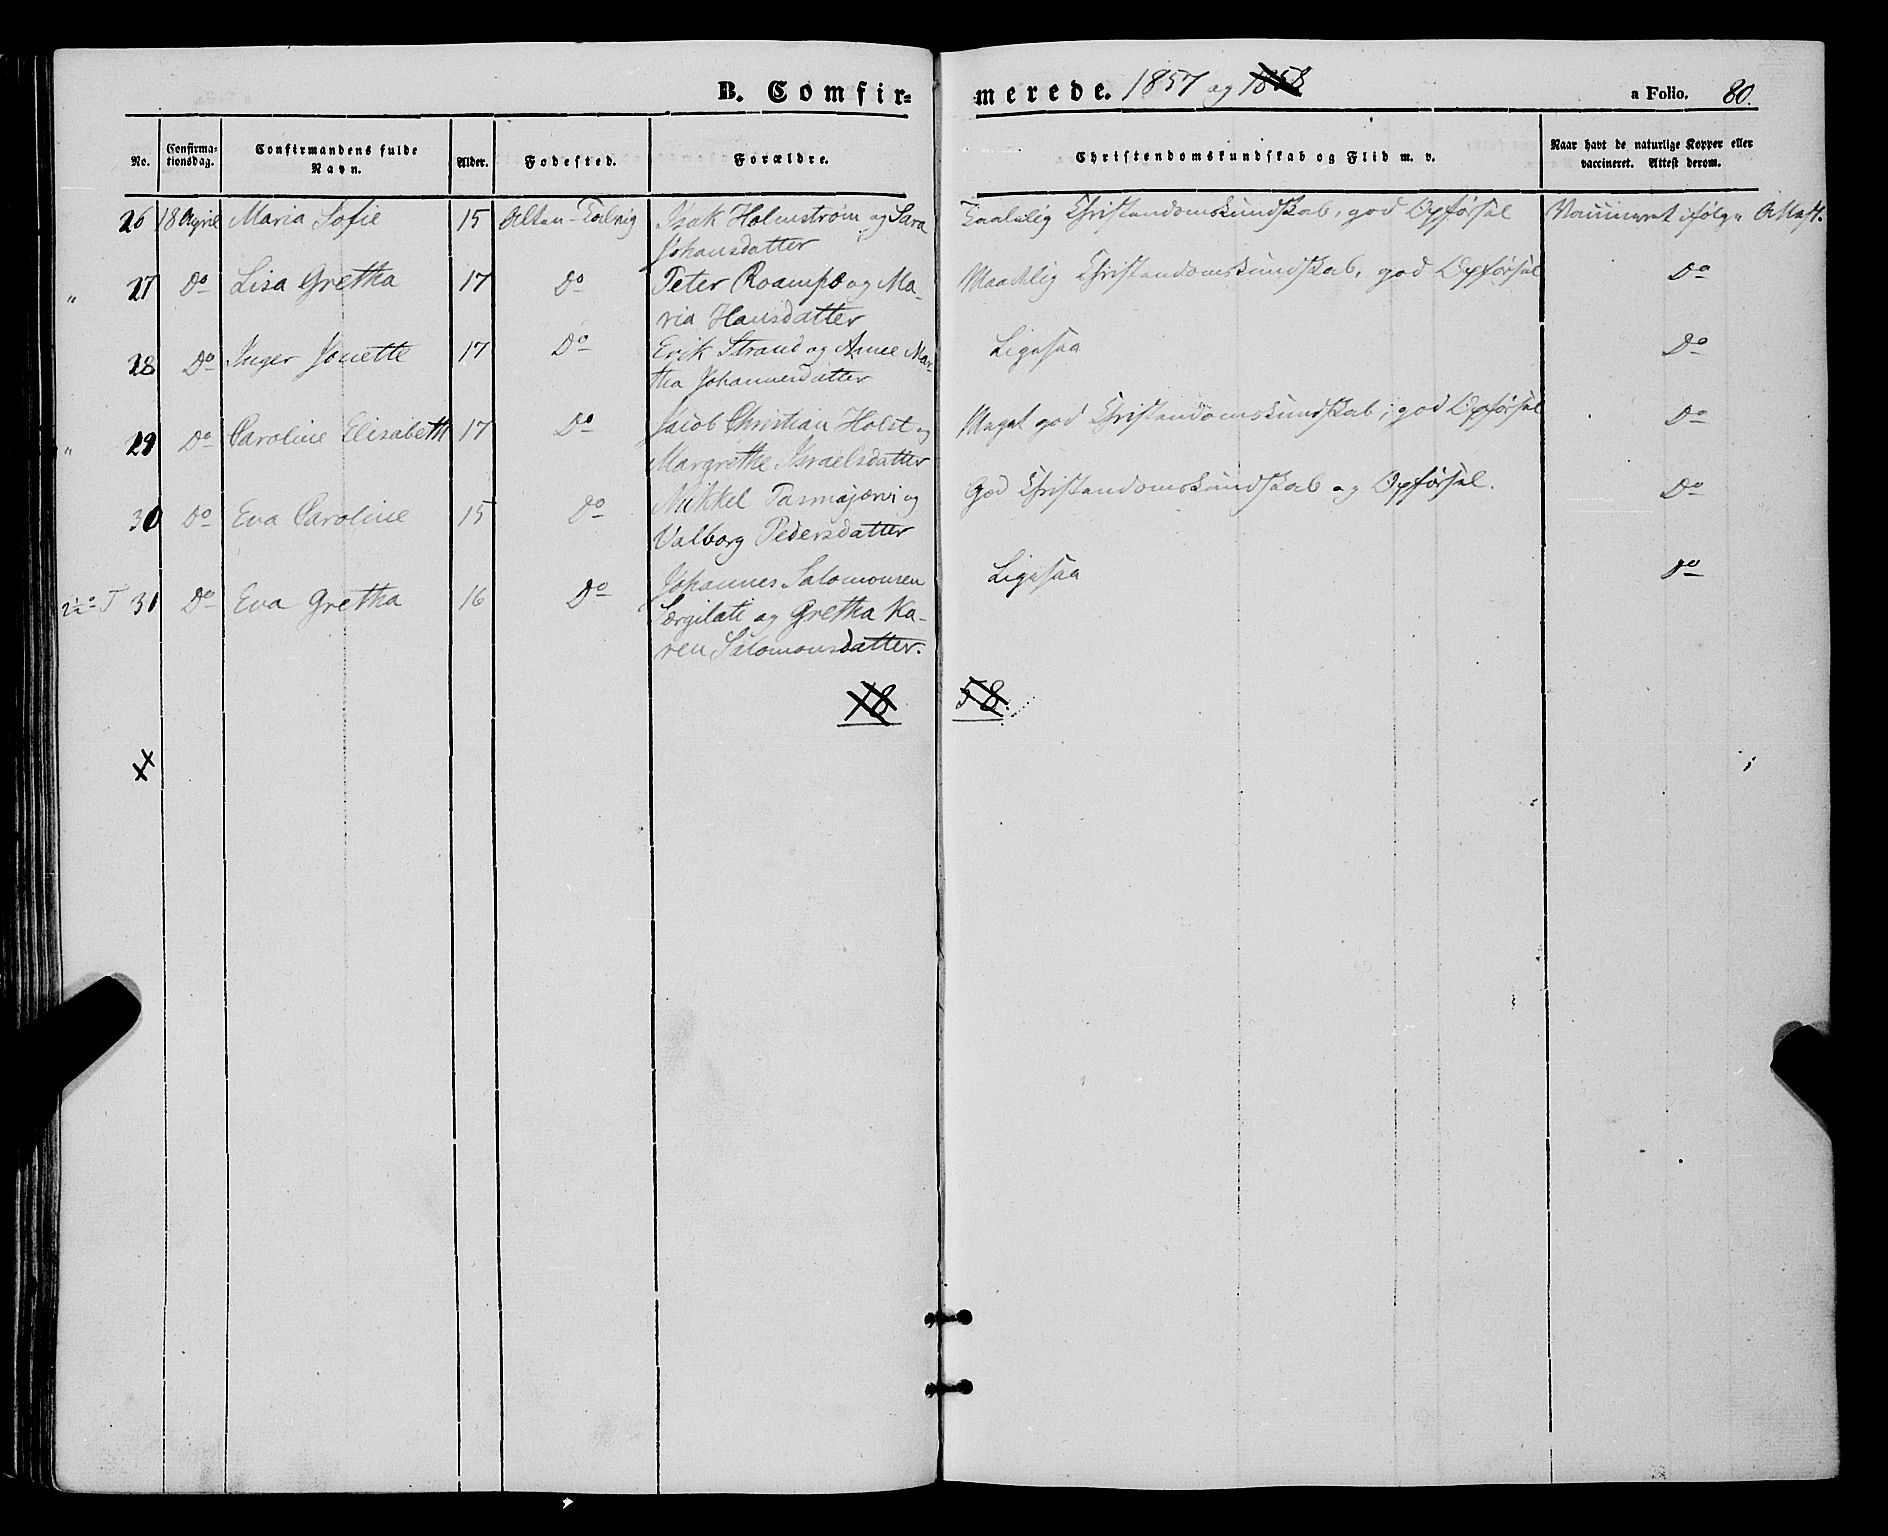 B. Comfir-
merede. 1857 og 1858
a Folio. 80.
No.
Confirma-
tionsdag.
Confirmandens fulde
Navn.
Alder.
Fødested.
Forældre.
Christendomskundskab og Flid m. v.
Naar havt de naturlige Kopper eller
vaccineret. Attest derom.
26 18 April Maria Sofie 15 Alten-Talvig Isak Holmstrøm og Sara Taalelig Christendomskundskab, god Opførsel Vaccineret ifølge Attest.
Johansdatter
" 27 Do Lisa Gretha 17 Do Peter Roampo og Ma- Maadelig Christendomskundskab, god Opførsel Do
ria Hansdatter
28 Do Inger Jonette 17 Do Erik Strand og Anne Mar- Ligesaa Do
tha Johannesdatter
" 29 Do Caroline Elisabeth 17 Do Jacob Christian Holst og Meget god Christendomskundskab, god Opførsel Do
Margrethe Israelsdatter
30 Do Eva Caroline 15 Do Mikkel Pasmajærvi og God Christendomskundskab og Opførsel. Do
Valborg Pedersdatter
31 Do Eva Gretha 16 Do Johannes Salomonsen Ligesaa Do
Særgilati og Gretha Ka-
ren Salomonsdatter.
18 58